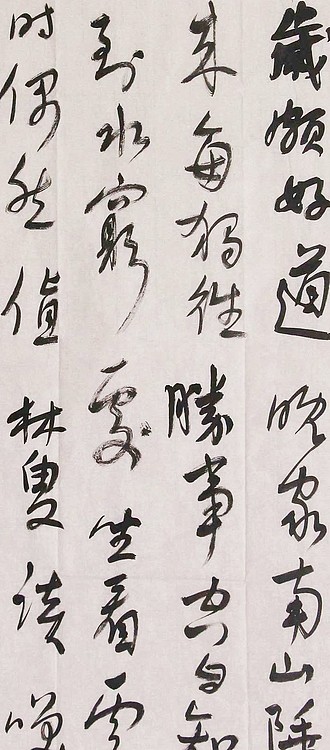 歲頗好道晚家南山陲
來每獨往勝事空自知
到水窮處坐看雲
時偶然值林叟談